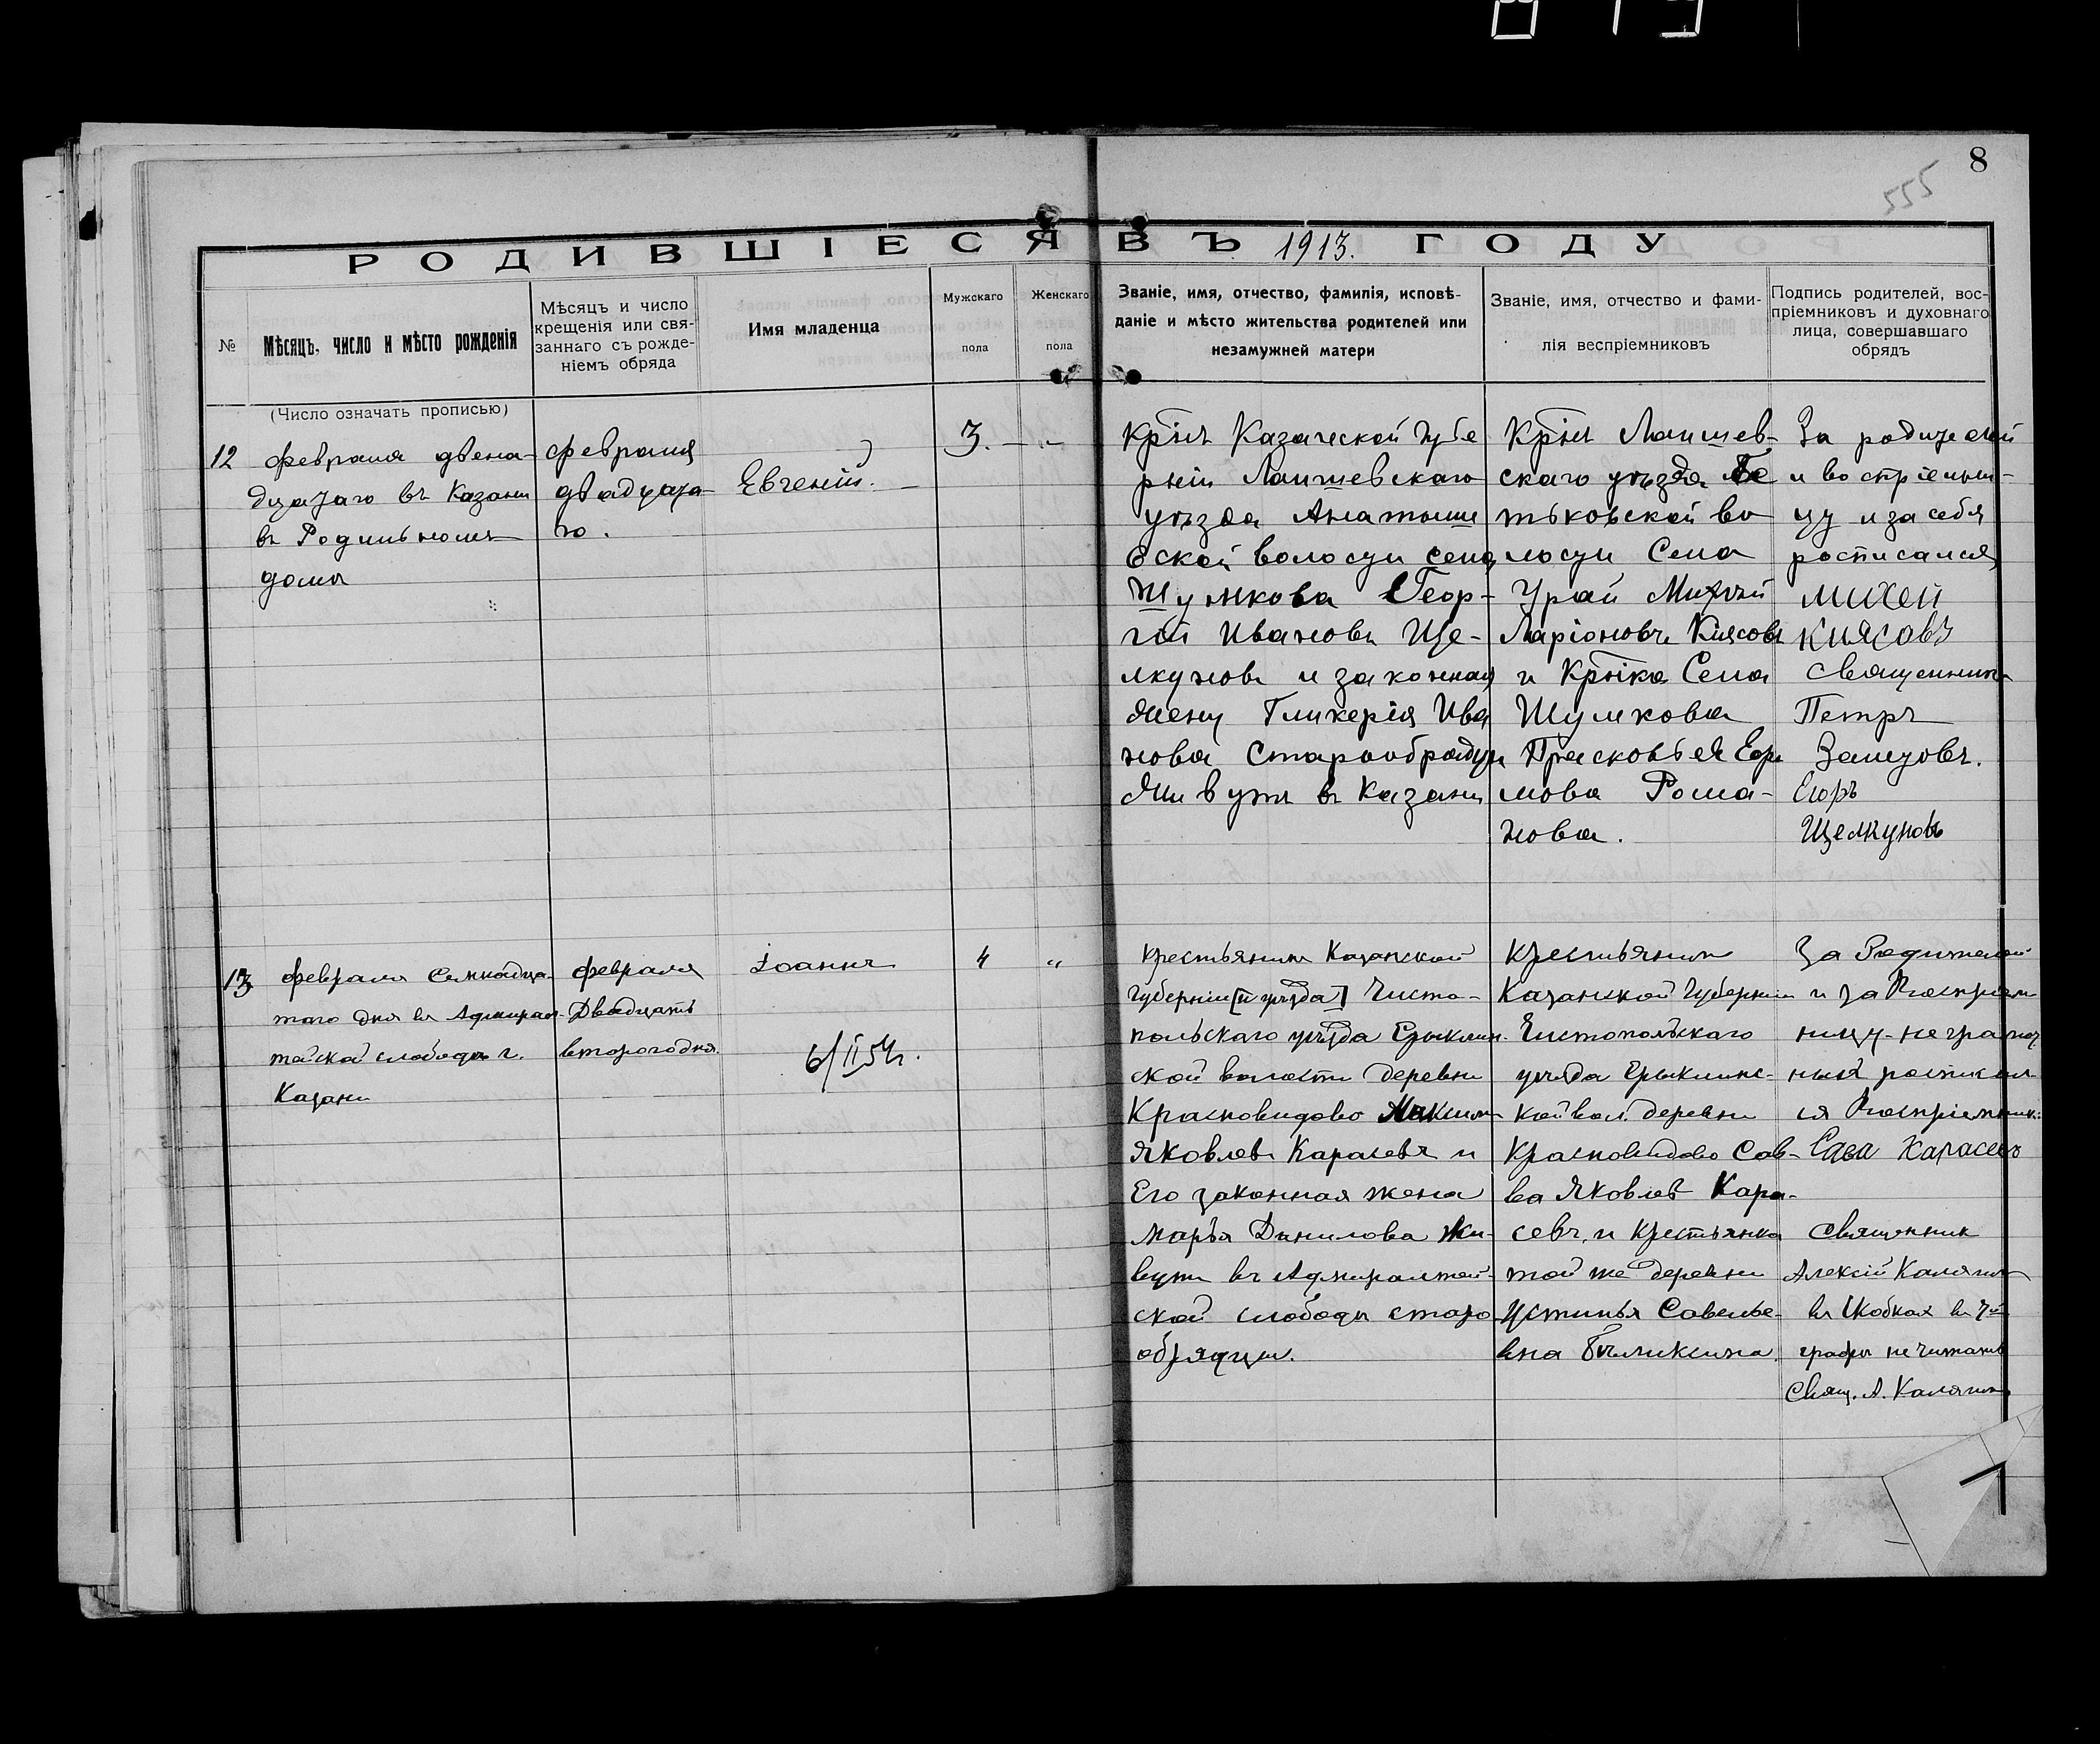 8
555
РОДИВШІЕСЯ ВЪ 1913. ГОДУ
№
Мѣсяцъ, число и мѣсто рожденія
Мѣсяцъ и число
крещенія или свя-
заннаго съ рожде-
ніемъ обряда
Имя младенца
Мужскаго
пола
Женскаго
пола
Званіе, имя, отчество, фамилія, исповѣ-
даніе и мѣсто жительства родителей или
незамужней матери
Званіе, имя, отчество и фами-
лія веспріемниковъ
Подпись родителей, вос-
пріемниковъ и духовнаго
лица, совершавшаго
обрядъ
(Число означать прописью)
12
Февраля двена-
дцатаго въ Казани
въ Родильномъ
дома
Февраля
двадцата-
го.
Евгеній.
3.
Крнъ Казанской губе
рніи Лаишевскаго
уѣзда Анатыш
ской волости села
Шумкова Геор-
гій Ивановъ Ще-
лкуновъ и законная
жену Гликерія Ива
нова Старообрядцы
Живутъ въ Казани
Крнъ Лаишев-
скаго уѣзда
тьковской во
лости Села
Урай Михей
Ларіоновъ Князовъ
и Крнка Села
Шумкова
Прасковья Еф
мова Рома-
нова.
За родителей
и воспріемни-
цу и за себя
росписался
михей
князовъ
Священникъ
Петръ
Залетовъ.
Егоръ
Щелкуновъ
13
Февраля Семнадца-
таго дня въ Адмирал-
тейской слободѣ г.
Казани
Февраля
Двадцать
второго дня.
Іоаннъ
6/II 54г.
4
"
Крестьянинъ Казанской
Губерніи [и уѣзда] Чисто-
польскаго уѣзда Ерыклин-
ской волости деревни
Красновидово Максимъ
Яковлевъ Карасевъ и
Его законная жена
Марья Данилова Жи-
вутъ въ Адмиралтей-
ской слободѣ старо
обрядцы.
Крестьянинъ
Казанской Губерніи
Чистопольскаго
уѣзда Ерыклинс-
кой вол. деревни
Красновидово Сав-
ва Яковлевъ Кара-
севъ, и Крестьянка
той же деревни
Устинья Савелье-
вна
За Родителей
и за Воспріем
ницу - неграмот
ныхъ росписал-
ся Воспріемник:
Сава Карасевъ
Священник
Алексій Калягинъ
въ Скобках въ 7й
графѣ не читать
Свящ. А. Калягинъ